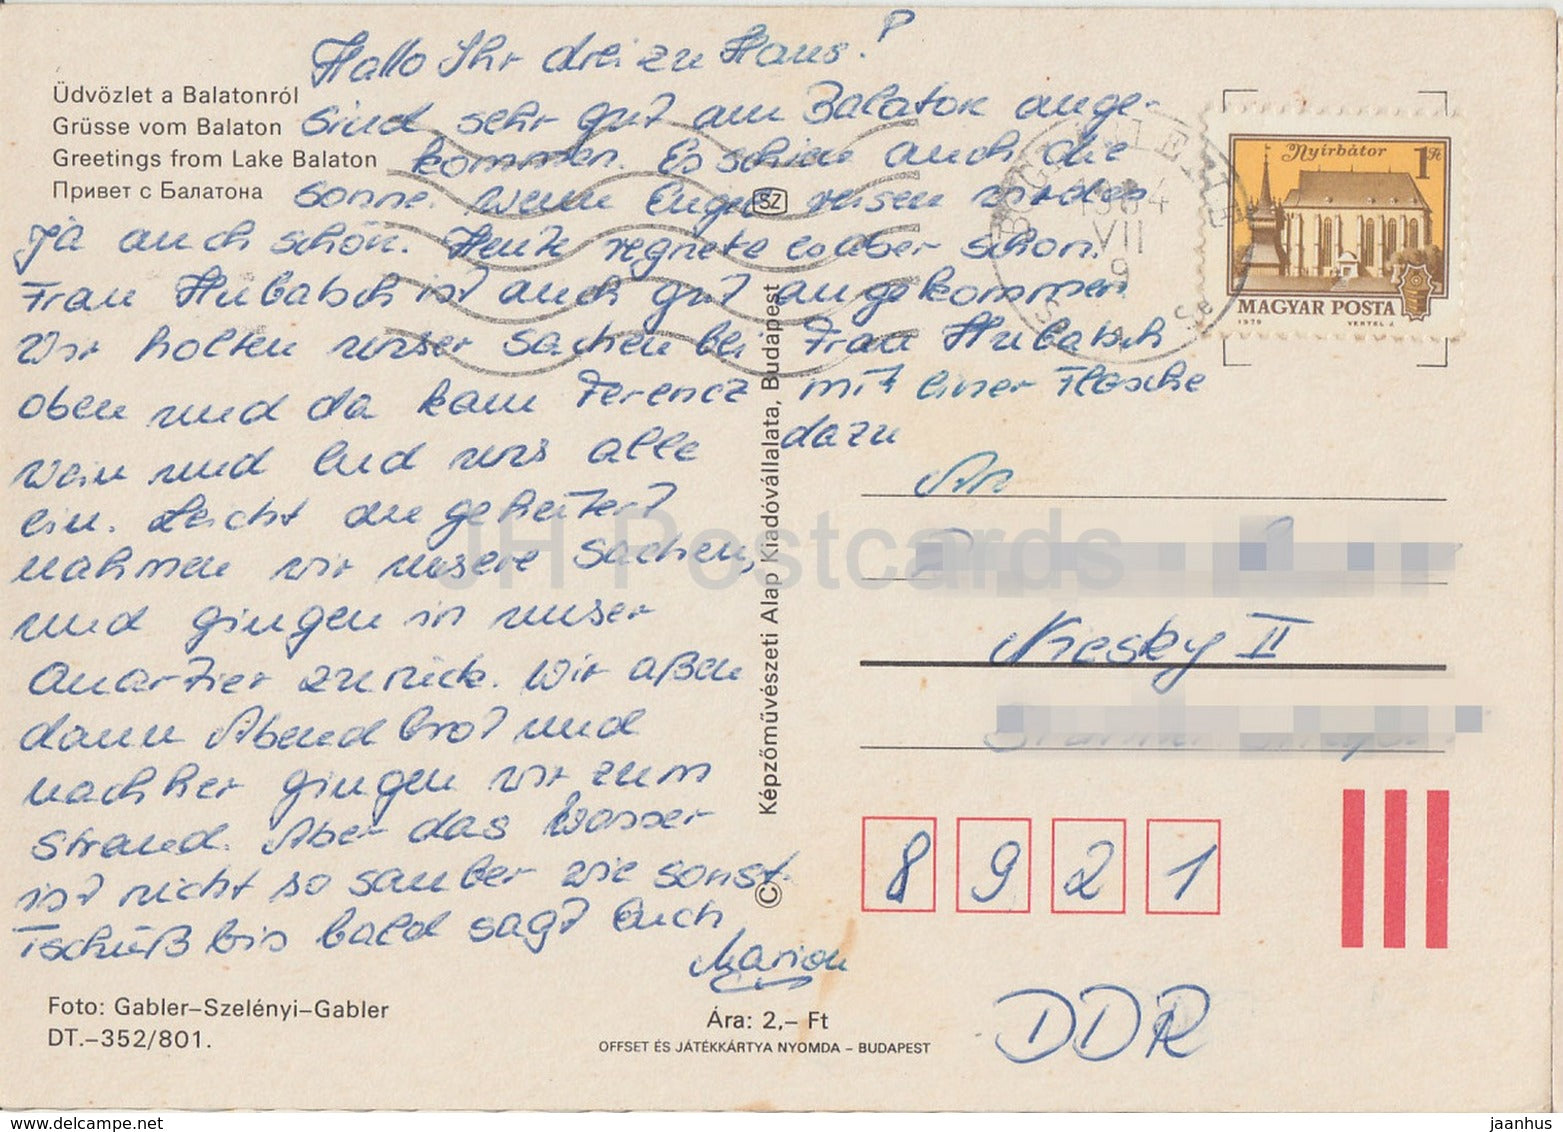 Hallo Ihr drei zu Haus!
Üdvözlet a Balatonról
Grüsse vom Balaton
Greetings from Lake Balaton
Привет с Балатона
Sind sehr gut am Balaton ange-
kommen. Es schien auch die
Sonne. Wenn Engel reisen wird es
ja auch schön. Heute regnete es aber schon.
Frau Hubatsch ist auch gut angekommen
Wir holten unser Sachen bei Frau Hubatsch
oben und da kam Ferencz mit einer Flasche
Wein und lud uns alle dazu
ein. Leicht angeheitert
nahmen wir unsere Sachen,
und gingen in unser
Quartier zurück. Wir aßen
dann Abendbrot und
nachher gingen wir zum
Strand. Aber das Wasser
ist nicht so sauber wie sonst.
Tschüß bis bald sagt Euch
Marion
Foto: Gabler–Szelényi–Gabler
DT.–352/801.
Képzőművészeti Alap Kiadóvállalata, Budapest
©
SZ
Ára: 2,– Ft
OFFSET ÉS JÁTÉKKÁRTYA NYOMDA – BUDAPEST
Nyírbátor 1 Ft
MAGYAR POSTA
1979 VERTEL J.
1984
VII
9
An
Niesky II
8 9 2 1
DDR
JH Postcards
www.delcampe.net
jaanhus